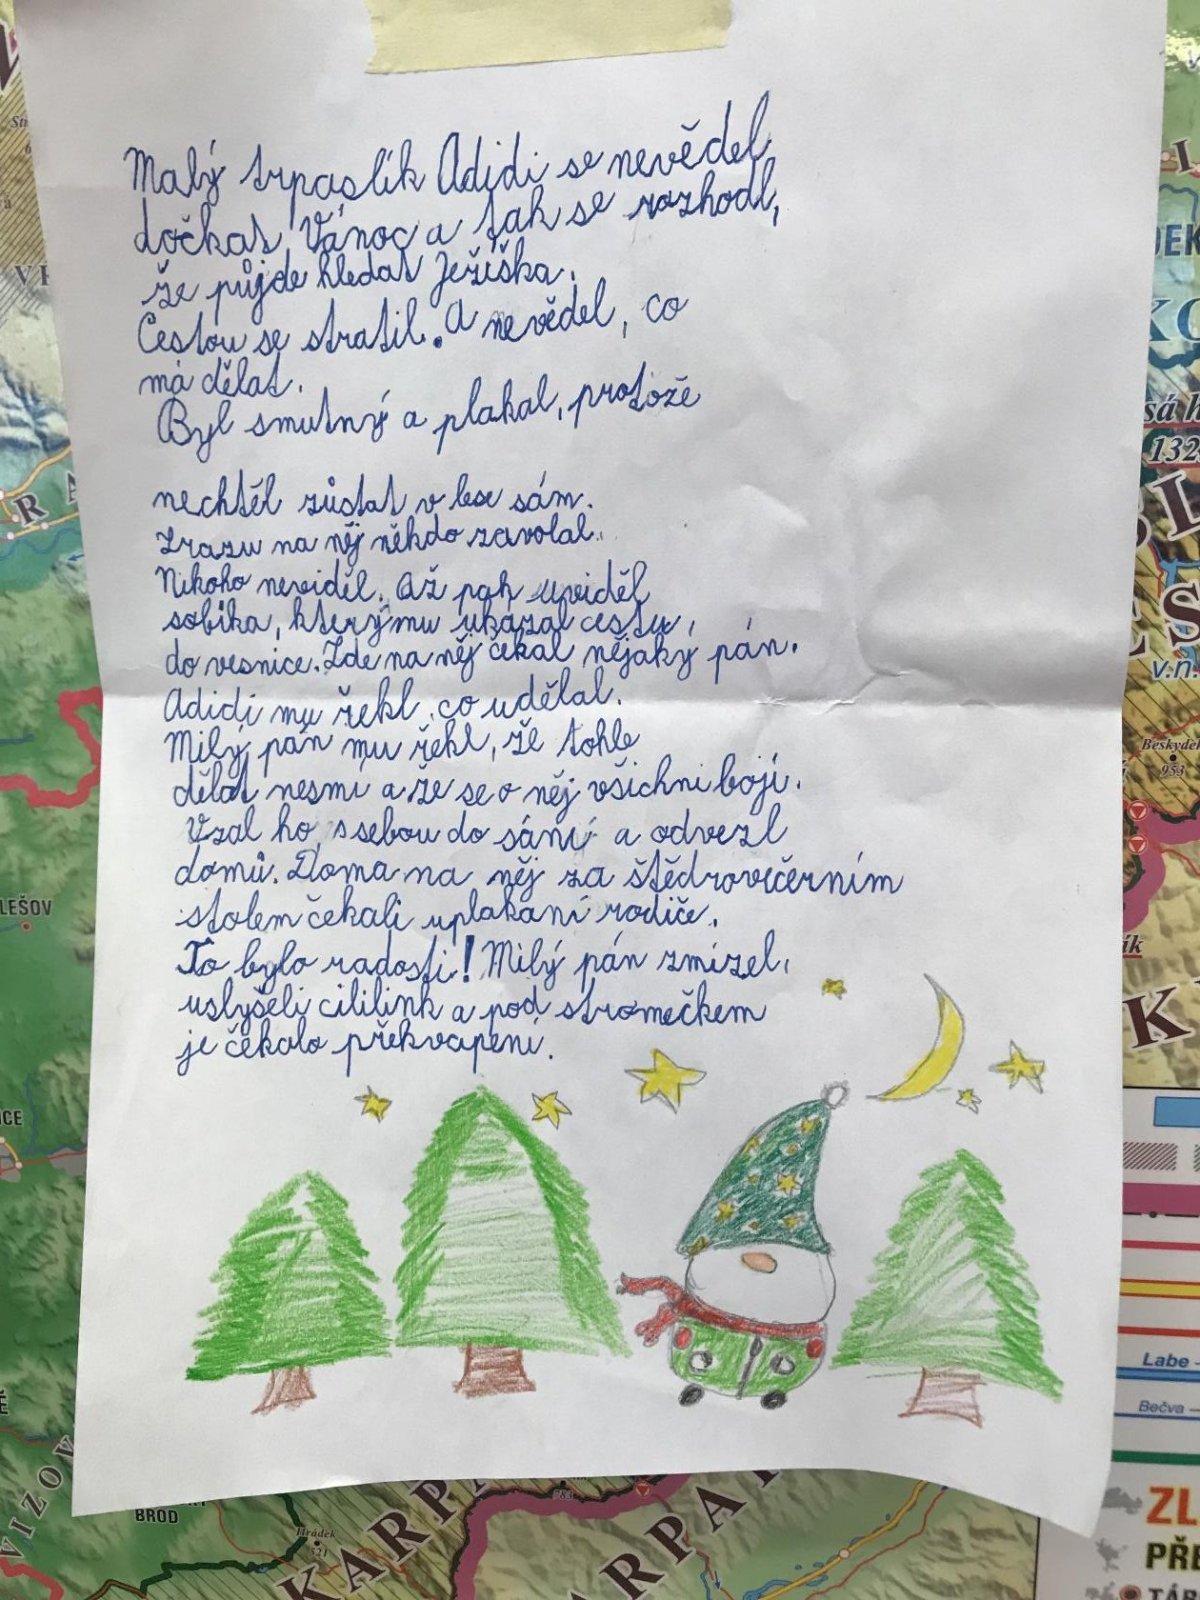 Malý trpaslík Adidi se nevěděl
dočkat Vánoc a tak se rozhodl,
že půjde hledat Ježíška.
Cestou se stratil. A nevěděl, co
má dělat.
Byl smutný a plakal, protože
nechtěl zůstat v lese sám.
Zrazu na něj někdo zavolal.
Nikoho neviděl. Až pak uviděl
sobíka, který mu ukázal cestu,
do vesnice. Zde na něj čekal nějaký pán.
Adidi mu řekl, co udělal.
Milý pán mu řekl, že tohle
dělat nesmí a že se o něj všichni bojí.
Vzal ho s sebou do sání a odvezl
domů. Doma na něj za štědrovečerním
stolem čekali uplakaní rodiče.
To bylo radosti! Milý pán zmizel,
uslyšeli cililink a pod stromečkem
je čekalo překvapení.
LEŠOV
BROD
Hrádek
521
KARPA
ARPAT
VIZOV
783
DEK
KO
sá h
132
v.n.
Beskydek
953
ík
K
Labe
Bečva
ZL
PŘE
TÁB